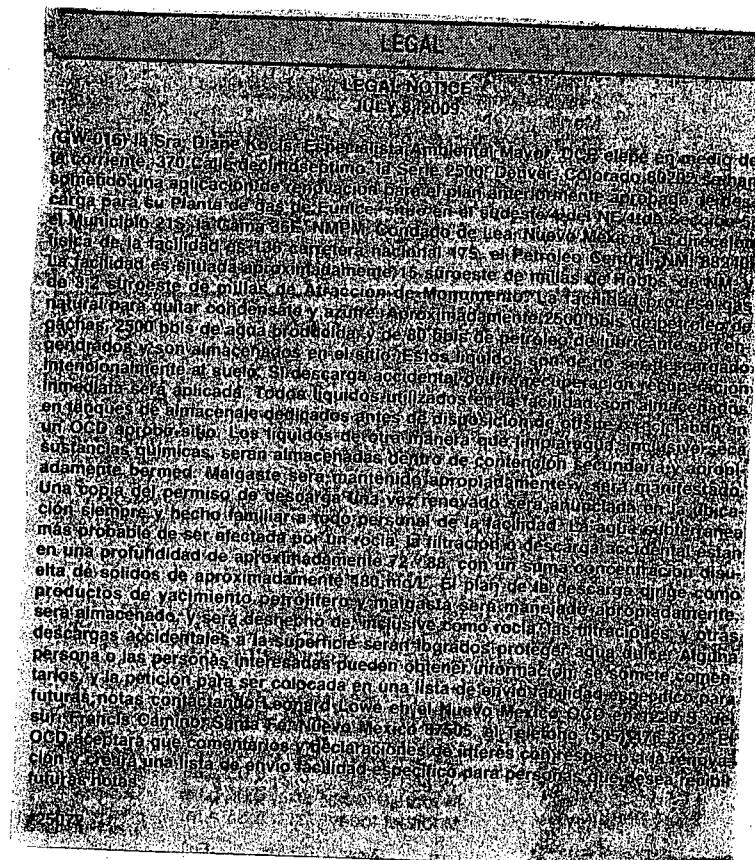 LEGAL
LEGAL NOTICE
JULY 8, 2009
(GW-016) la Sra. Diane Kocis, Especialista Ambiental Mayor, DCP elepe en medio de
la corriente, 370 Calle decimoséptimo, la Serie 2500, Denver, Colorado 80202, se han
sometido una aplicación de renovación para el plan anteriormente aprobado de des-
carga para su Planta de gas de Eunice sitio en el sudeste/4 del NE/4 de Sección
el Municipio 21S, la Gama 36E, NMPM, Condado de Lea, Nuevo México. La dirección
física de la facilidad es 136 carretera nacional 175, el Petróleo Central, NM 88240
La facilidad es situada aproximadamente 15 suroeste de millas de Hobbs, de NM y
de 3.2 suroeste de millas de Atracción de Monumento. La facilidad procesa gas
natural para quitar condensate y azufre. Aproximadamente 2500 bbls de petróleo de
gachas, 2500 bbls de agua producida y de 80 de petróleo de lubricante son en-
gendrados y son almacenados en el sitio. Estos líquidos son de no ser descargado
intencionalmente al suelo. Si descarga accidental ocurre recuperación recuperación
inmediata será aplicada. Todos líquidos utilizados en la facilidad son almacenados
en tanques de almacenaje dedicados antes de disposición de offsite o reciclando en
un OCD aprobó sitio. Los líquidos de otra manera que limpiar agua, inclusive
sustancias químicas, serán almacenadas dentro de contención secundaria y apropi-
adamente bermed. Malgaste será mantenido apropiadamente y será manifestado.
Una copia del permiso de descarga una vez renovado será anunciada en la ubica-
ción siempre y hecho familiar a todo personal de la facilidad. La agua subterránea
más probable de ser afectada por un rocía, la filtración o descarga accidental están
en una profundidad de aproximadamente 72 con un suma concentración disu-
elta de sólidos de aproximadamente 580 mg/L. El plan de la descarga dirige como
productos de yacimiento petrolífero y malgasta será manejado apropiadamente,
será almacenado, y será deshecho de, inclusive como rocía, las filtraciones, y otras
descargas accidentales a la superficie serán logrados proteger agua dulce. Alguna
persona o las personas interesadas pueden obtener información, somete comen-
tarios, y la petición para ser colocada en una lista de envío facilidad-específico para
futuras notas contactando Leonard Lowe en el Nuevo México OCD en 1220 S. del
sur, Francis Camino, Santa Fe, Nuevo México 87505, el Teléfono (505) 476-3492. El
OCD aceptará que comentarios y declaraciones de interés con respecto a la renova-
ción y creará una lista de envío facilidad-específico para personas que desea recibir
futuras notas.
#25072